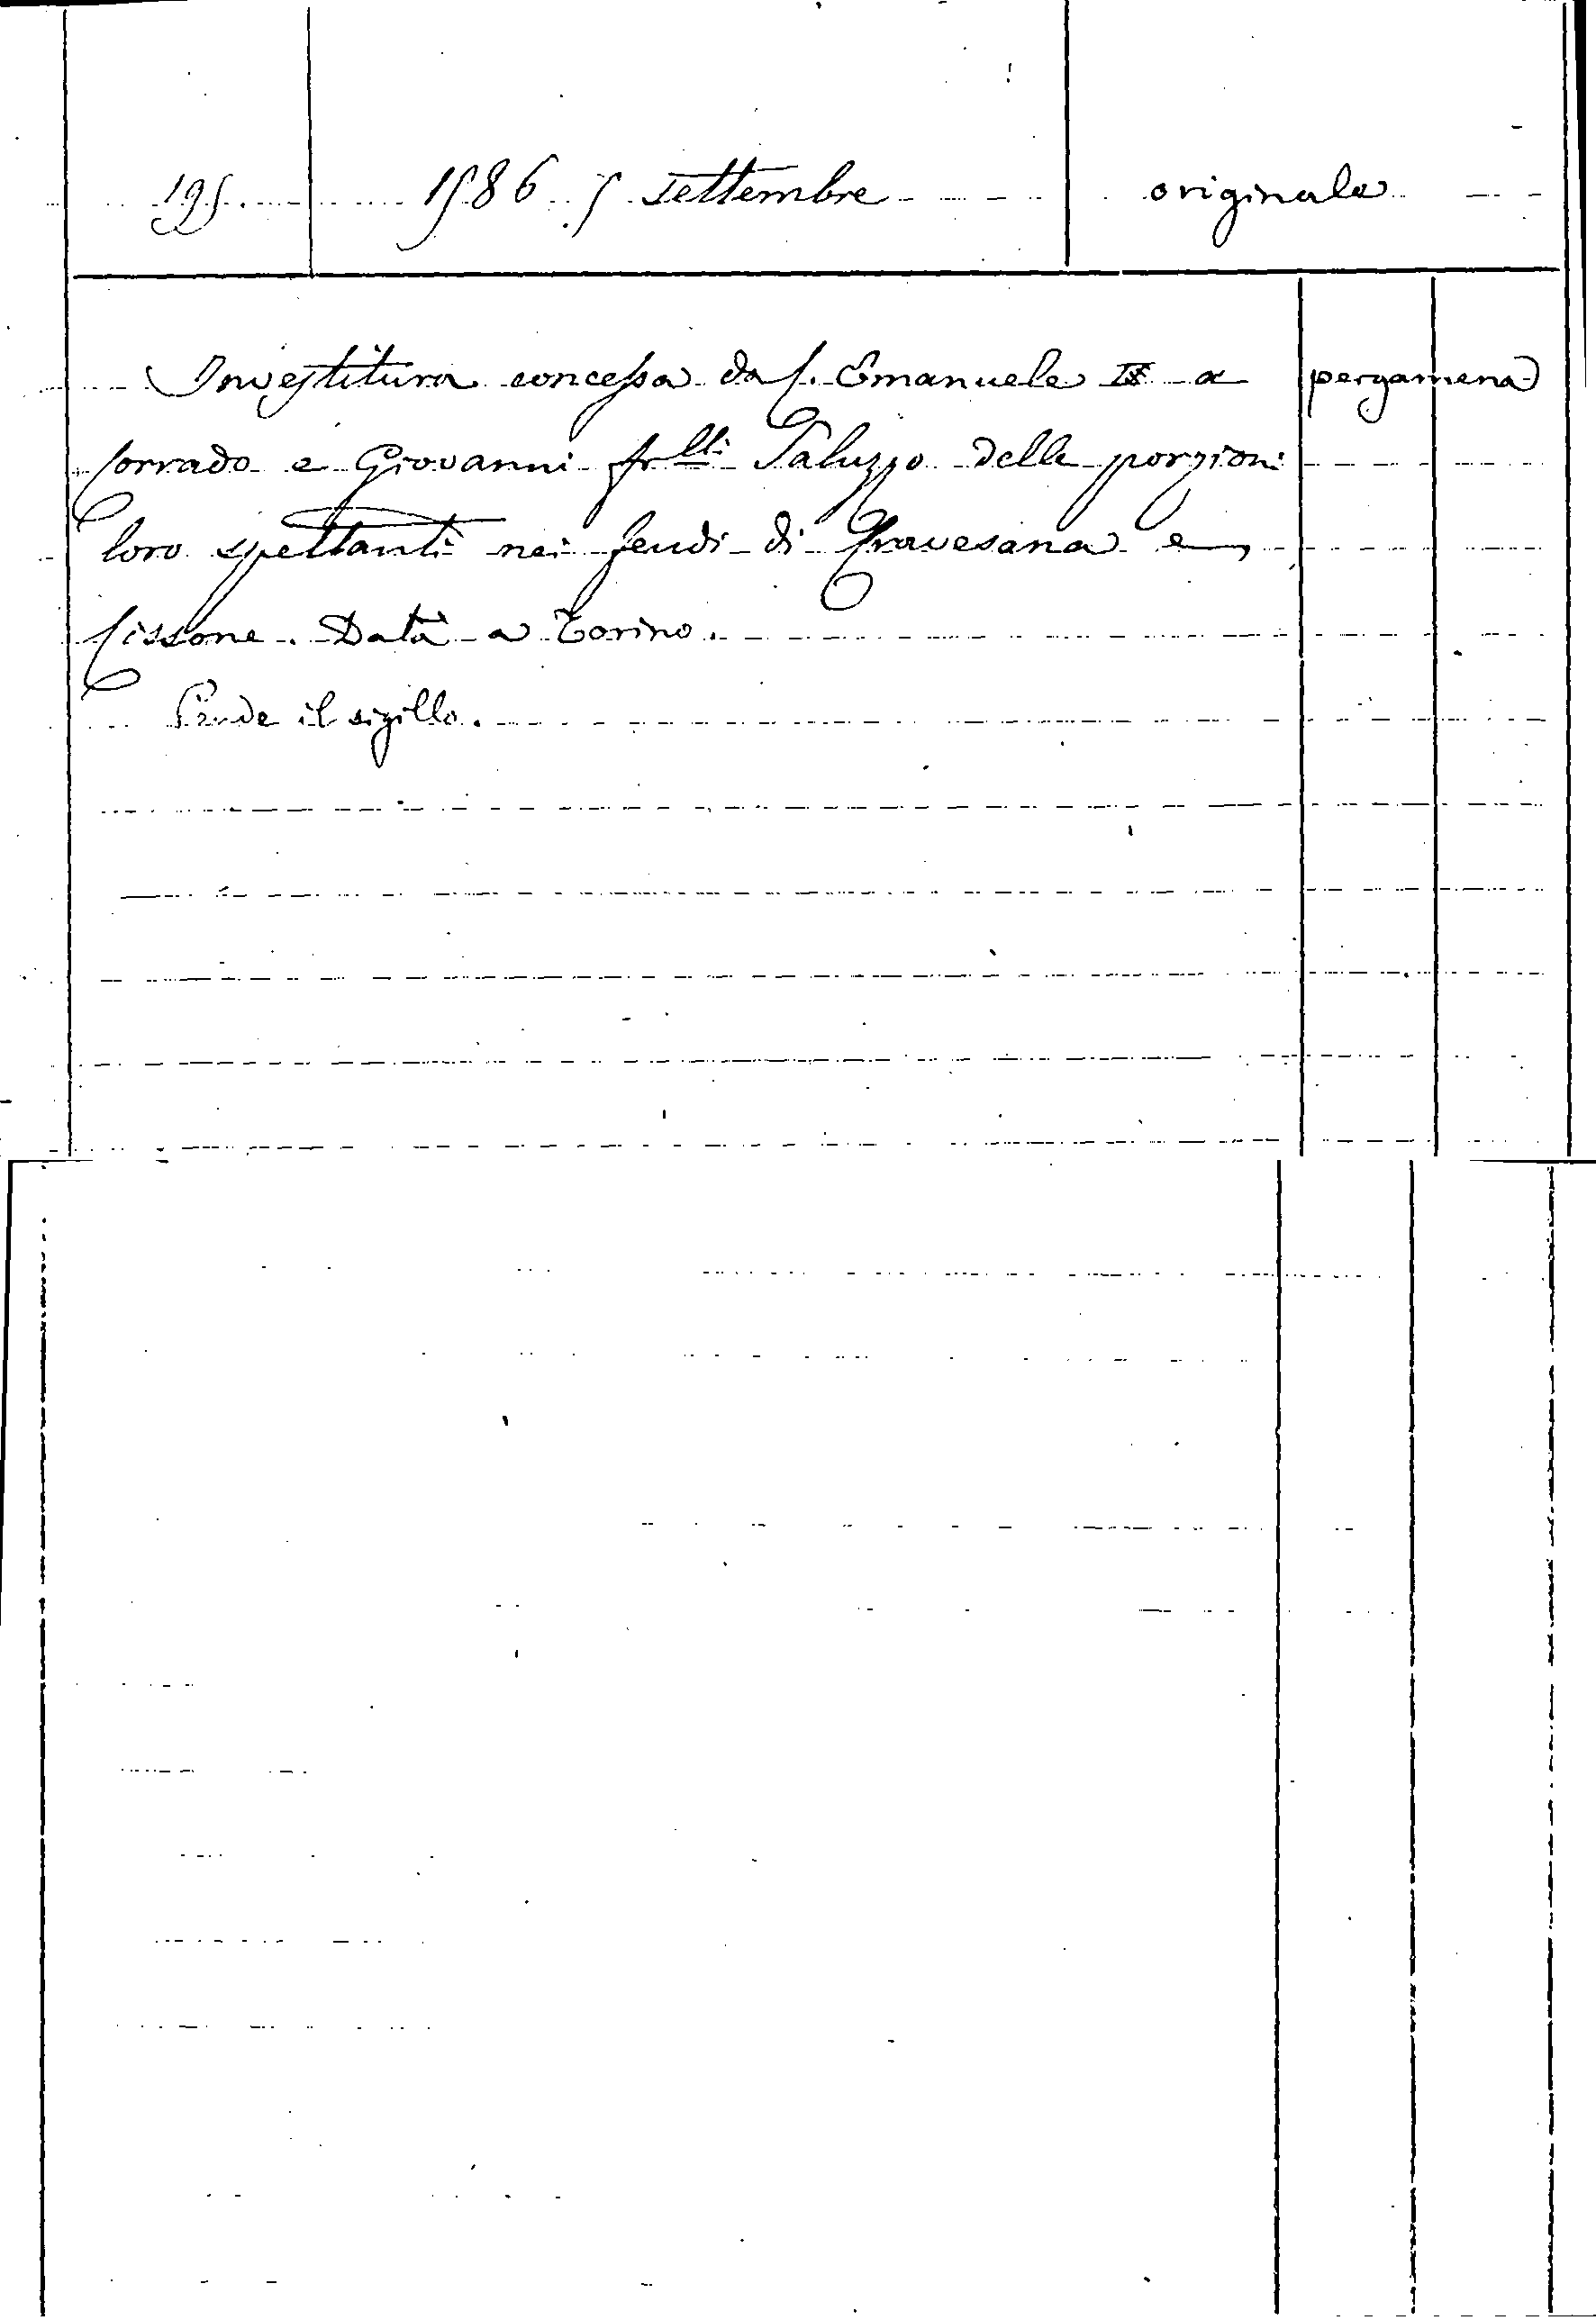 195. 1586. 5 settembre originale
Investitura concessa da C. Emanuele a pergamena
Corrado e Giovanni frlli Saluzzo delle porzioni
loro spettanti nei feudi di Cravesana e
Cissone. Data a Torino.
Pende il sigillo.